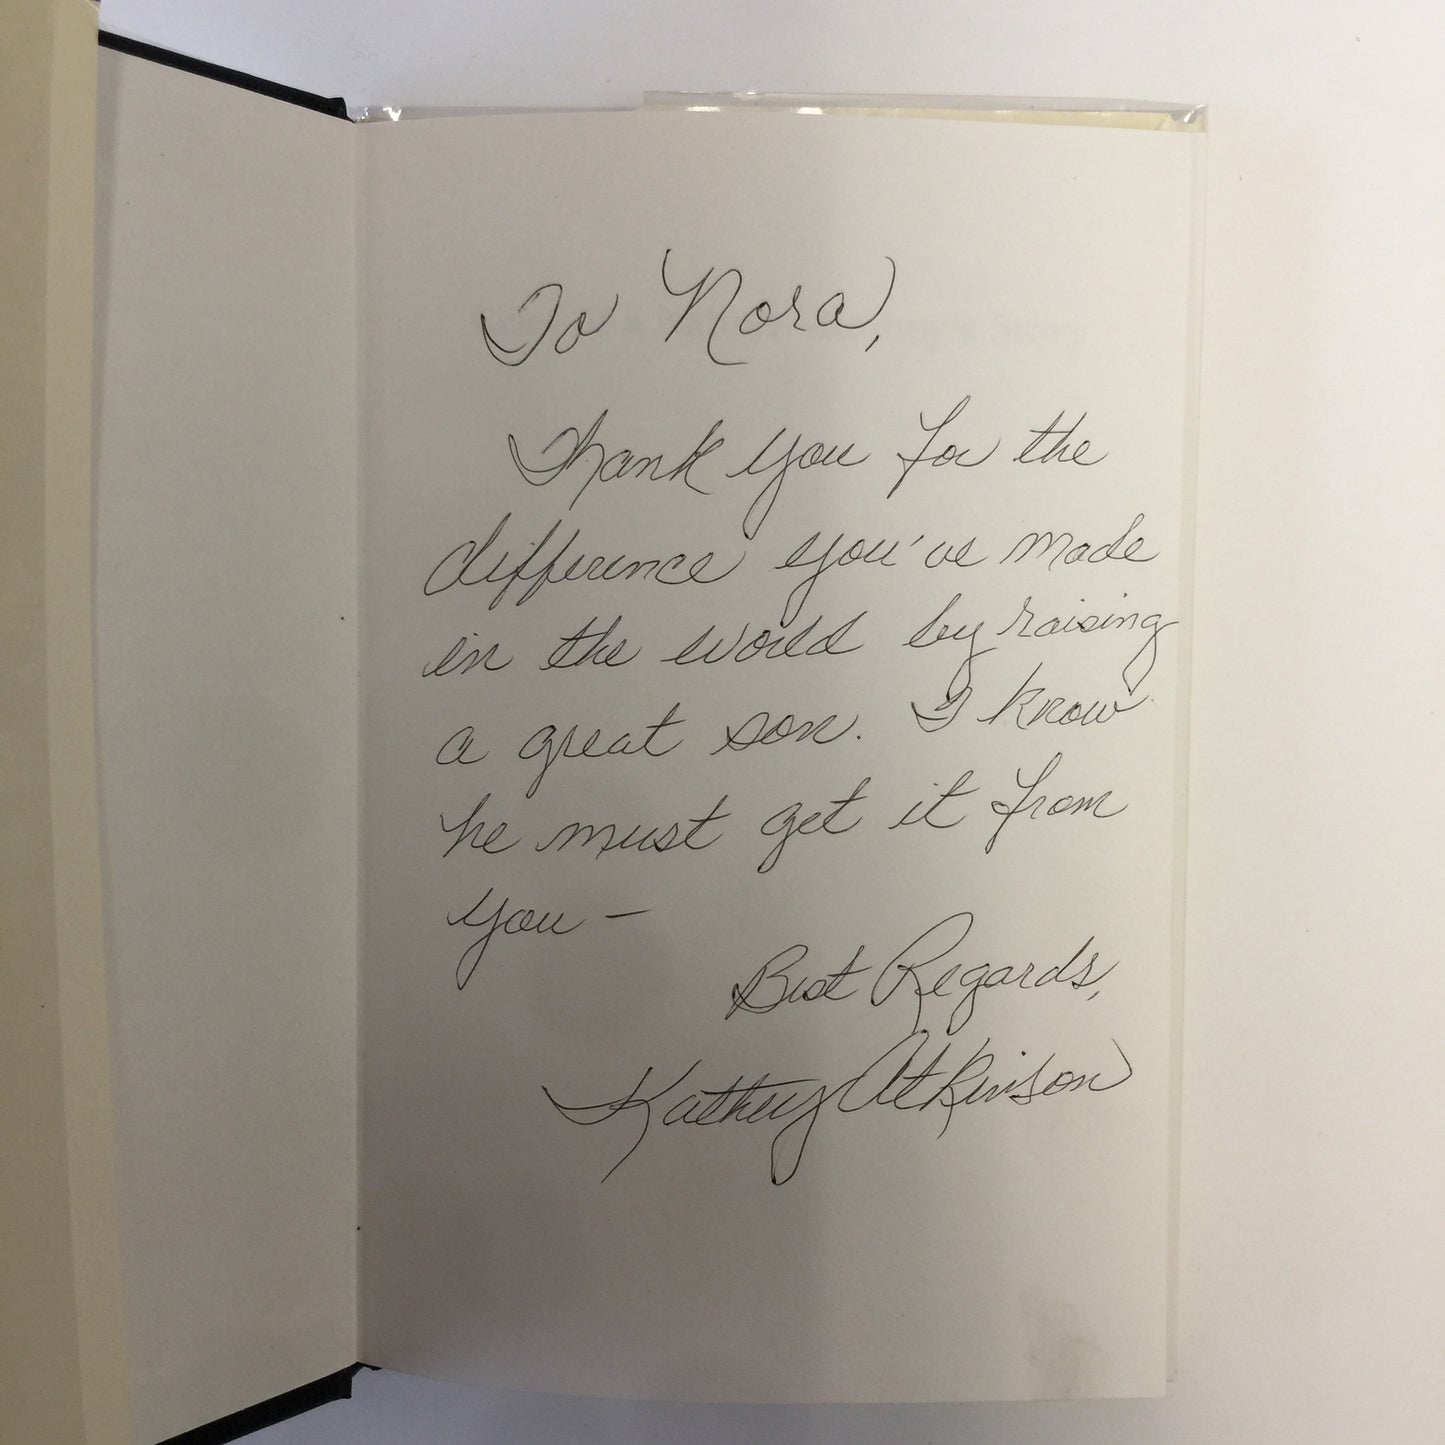 To Nora,
Thank you for the
difference you've made
in the world by raising
a great son. I know
he must get it from
you –
Best Regards,
Kathey Atkinson